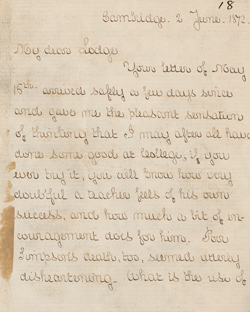 18
Cambridge. 2 June. 1872.
My dear Lodge
Your letter of May
15th. arrived safely a few days since
and gave me the pleasant sensation
of thinking that I may after all have
done some good at College, if you
ever try it, you will know how very
doubtful a teacher feels of his own
success, and how much a bit of en-
couragement does for him. Poor
Simpson's death, too, seemed utterly
disheartening. What is the use of